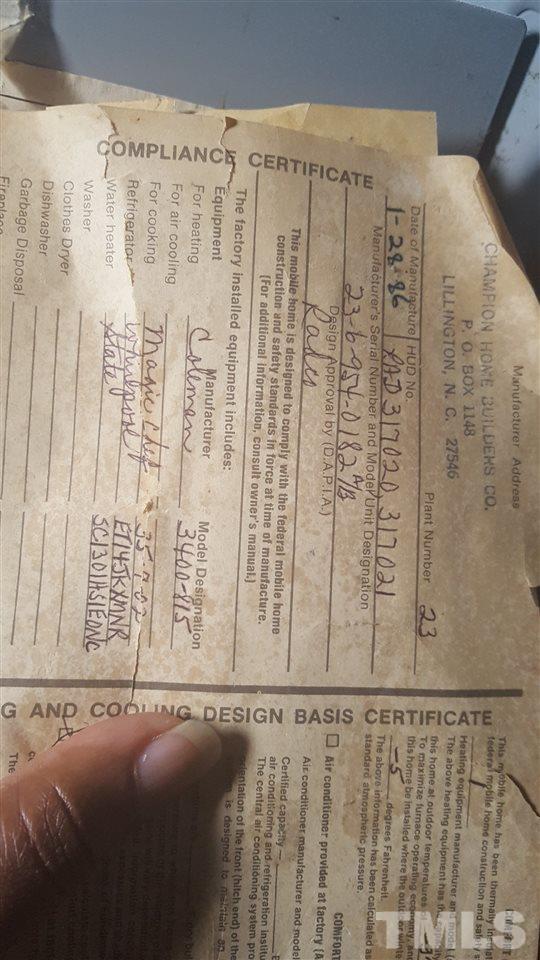 COMPLIANCE CERTIFICATE
Manufacturer Address
CHAMPION HOME BUILDERS CO.
P. O. BOX 1148
LILLINGTON, N. C. 27546
Plant Number 23
Date of Manufacture HUD No.
1-28-86 RAD 317020 317021
Manufacturer's Serial Number and Model Unit Designation
23-6-954-0182 A/B
Design Approval by (D.A.P.I.A.)
Radco
This mobile home is designed to comply with the federal mobile home
construction and safety standards in force at time of manufacture.
(For additional information, consult owner's manual.)
The factory installed equipment includes:
Equipment Manufacturer Model Designation
For heating Coleman 3400-815
For air cooling
For cooking Magic Chef
Refrigerator Whirlpool
Water heater State
Washer
Clothes Dryer
Dishwasher
Garbage Disposal
Fireplace
G AND COOLING DESIGN BASIS CERTIFICATE
This mobile home has been thermally
federal mobile home construction and safety
Heating equipment manufacturer
The above heating equipment has
this home at outdoor temperatures
To maximize furnace operating economy,
this home be installed where the
-5 degrees Fahrenheit.
The above information has been calculated
standard atmospheric pressure.
COMFORT
Air conditioner provided at factory
Air conditioner manufacturer and model
Certified capacity
air conditioning and refrigeration
The central air conditioning system
of the front (hitch end) of the
is designed to maintain an
The
TMLS